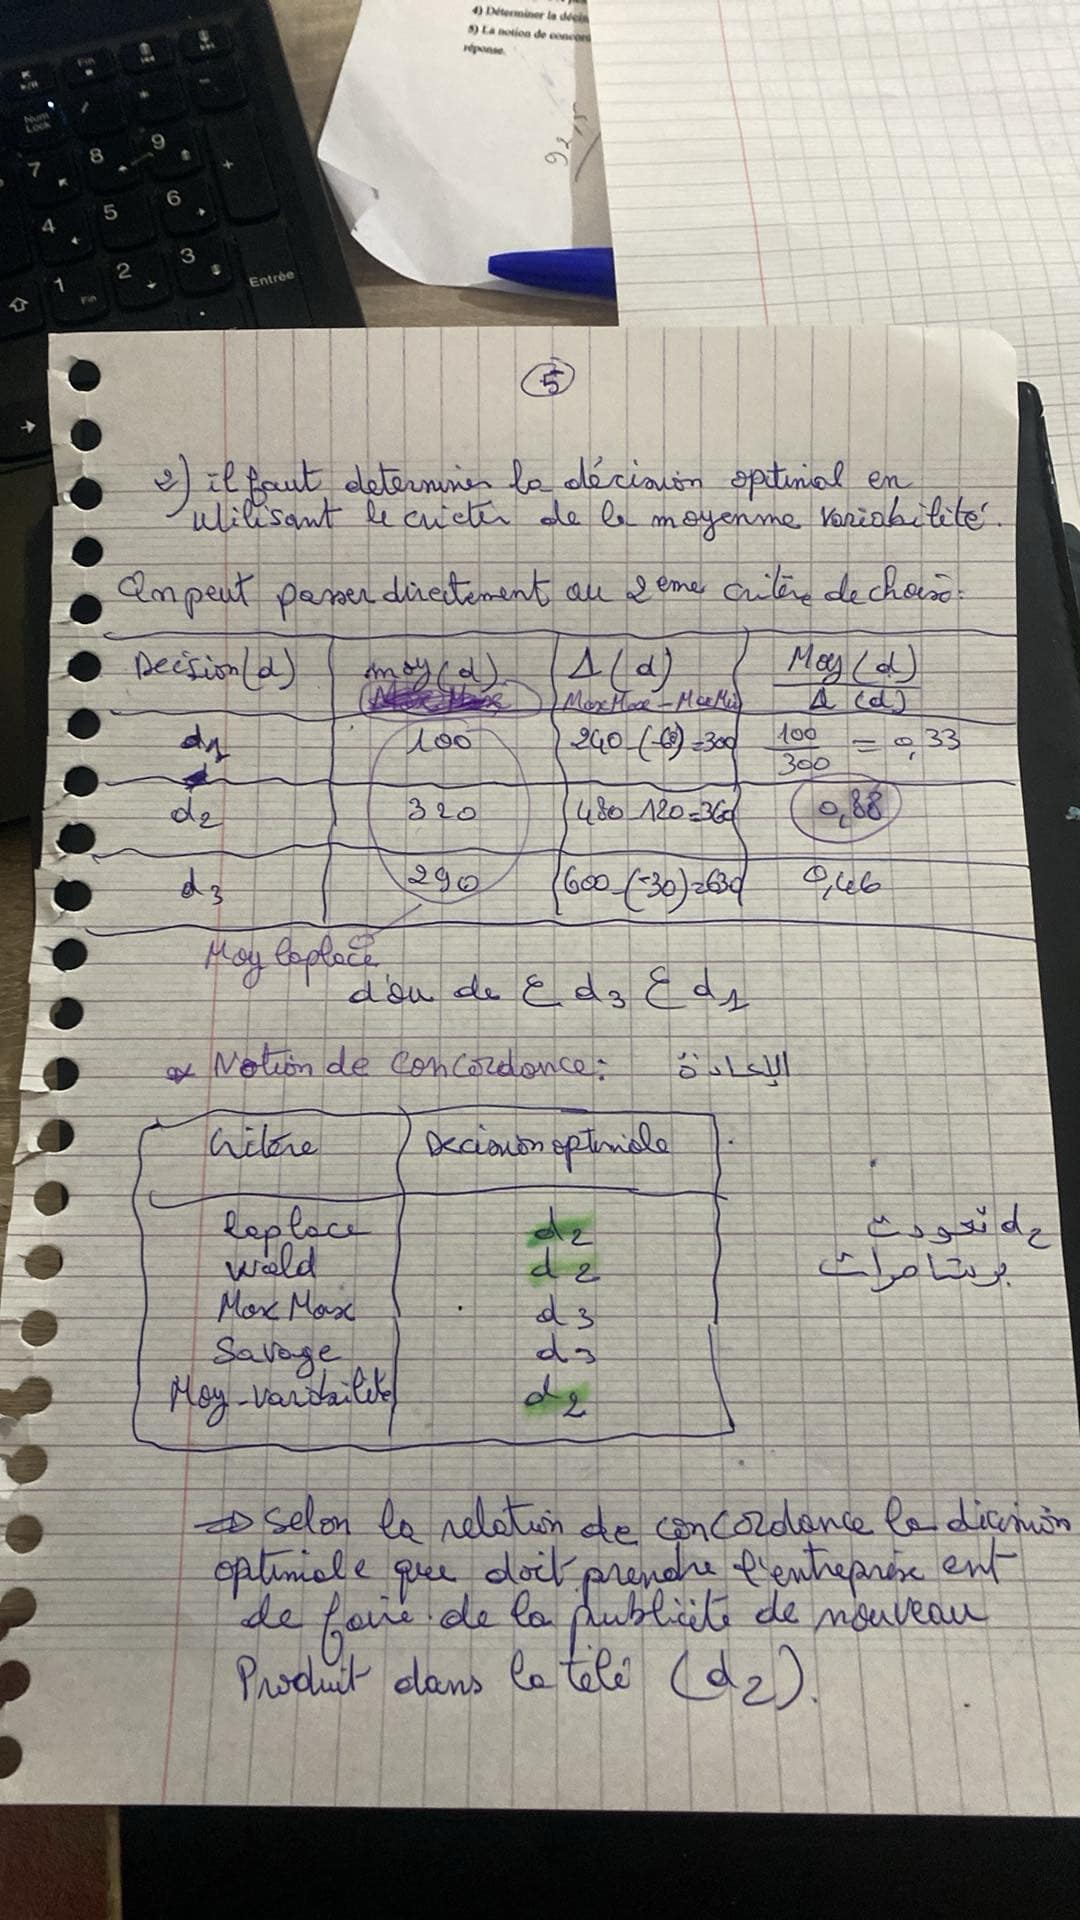 4) Déterminer la décis
5) La notion de concor
réponse.
92,5
Num Lock
Fin
7 8 9 +
4 5 6
1 2 3
Fin
Entrée
5
2) il faut determiner la décision optimal en
utilisant le criter de la moyenme variabilité.
On peut passer directement au 2eme critère de choix:
Decision(d) moy(d) Δ(d) Moy(d)
MaxMax-MaxMin Δ(d)
d1 100 240-(-60)=300 100/300 = 0,33
d2 320 480-120=360 0,88
d3 290 600-(-30)=630 0,46
Moy laplace
d'ou d2 Ɛ d3 Ɛ d1
* Notion de concordance: الإعادة
Critère Decision optimale
laplace d2 d2 تعودت
wald d2 مرات
MaxMax d3
Savage d3
Moy-variabilité d2
⇒ Selon la relation de concordance la dicision
optimale que doit prendre l'entreprise est
de faire de la publicité de nouveau
Produit dans la télé (d2).